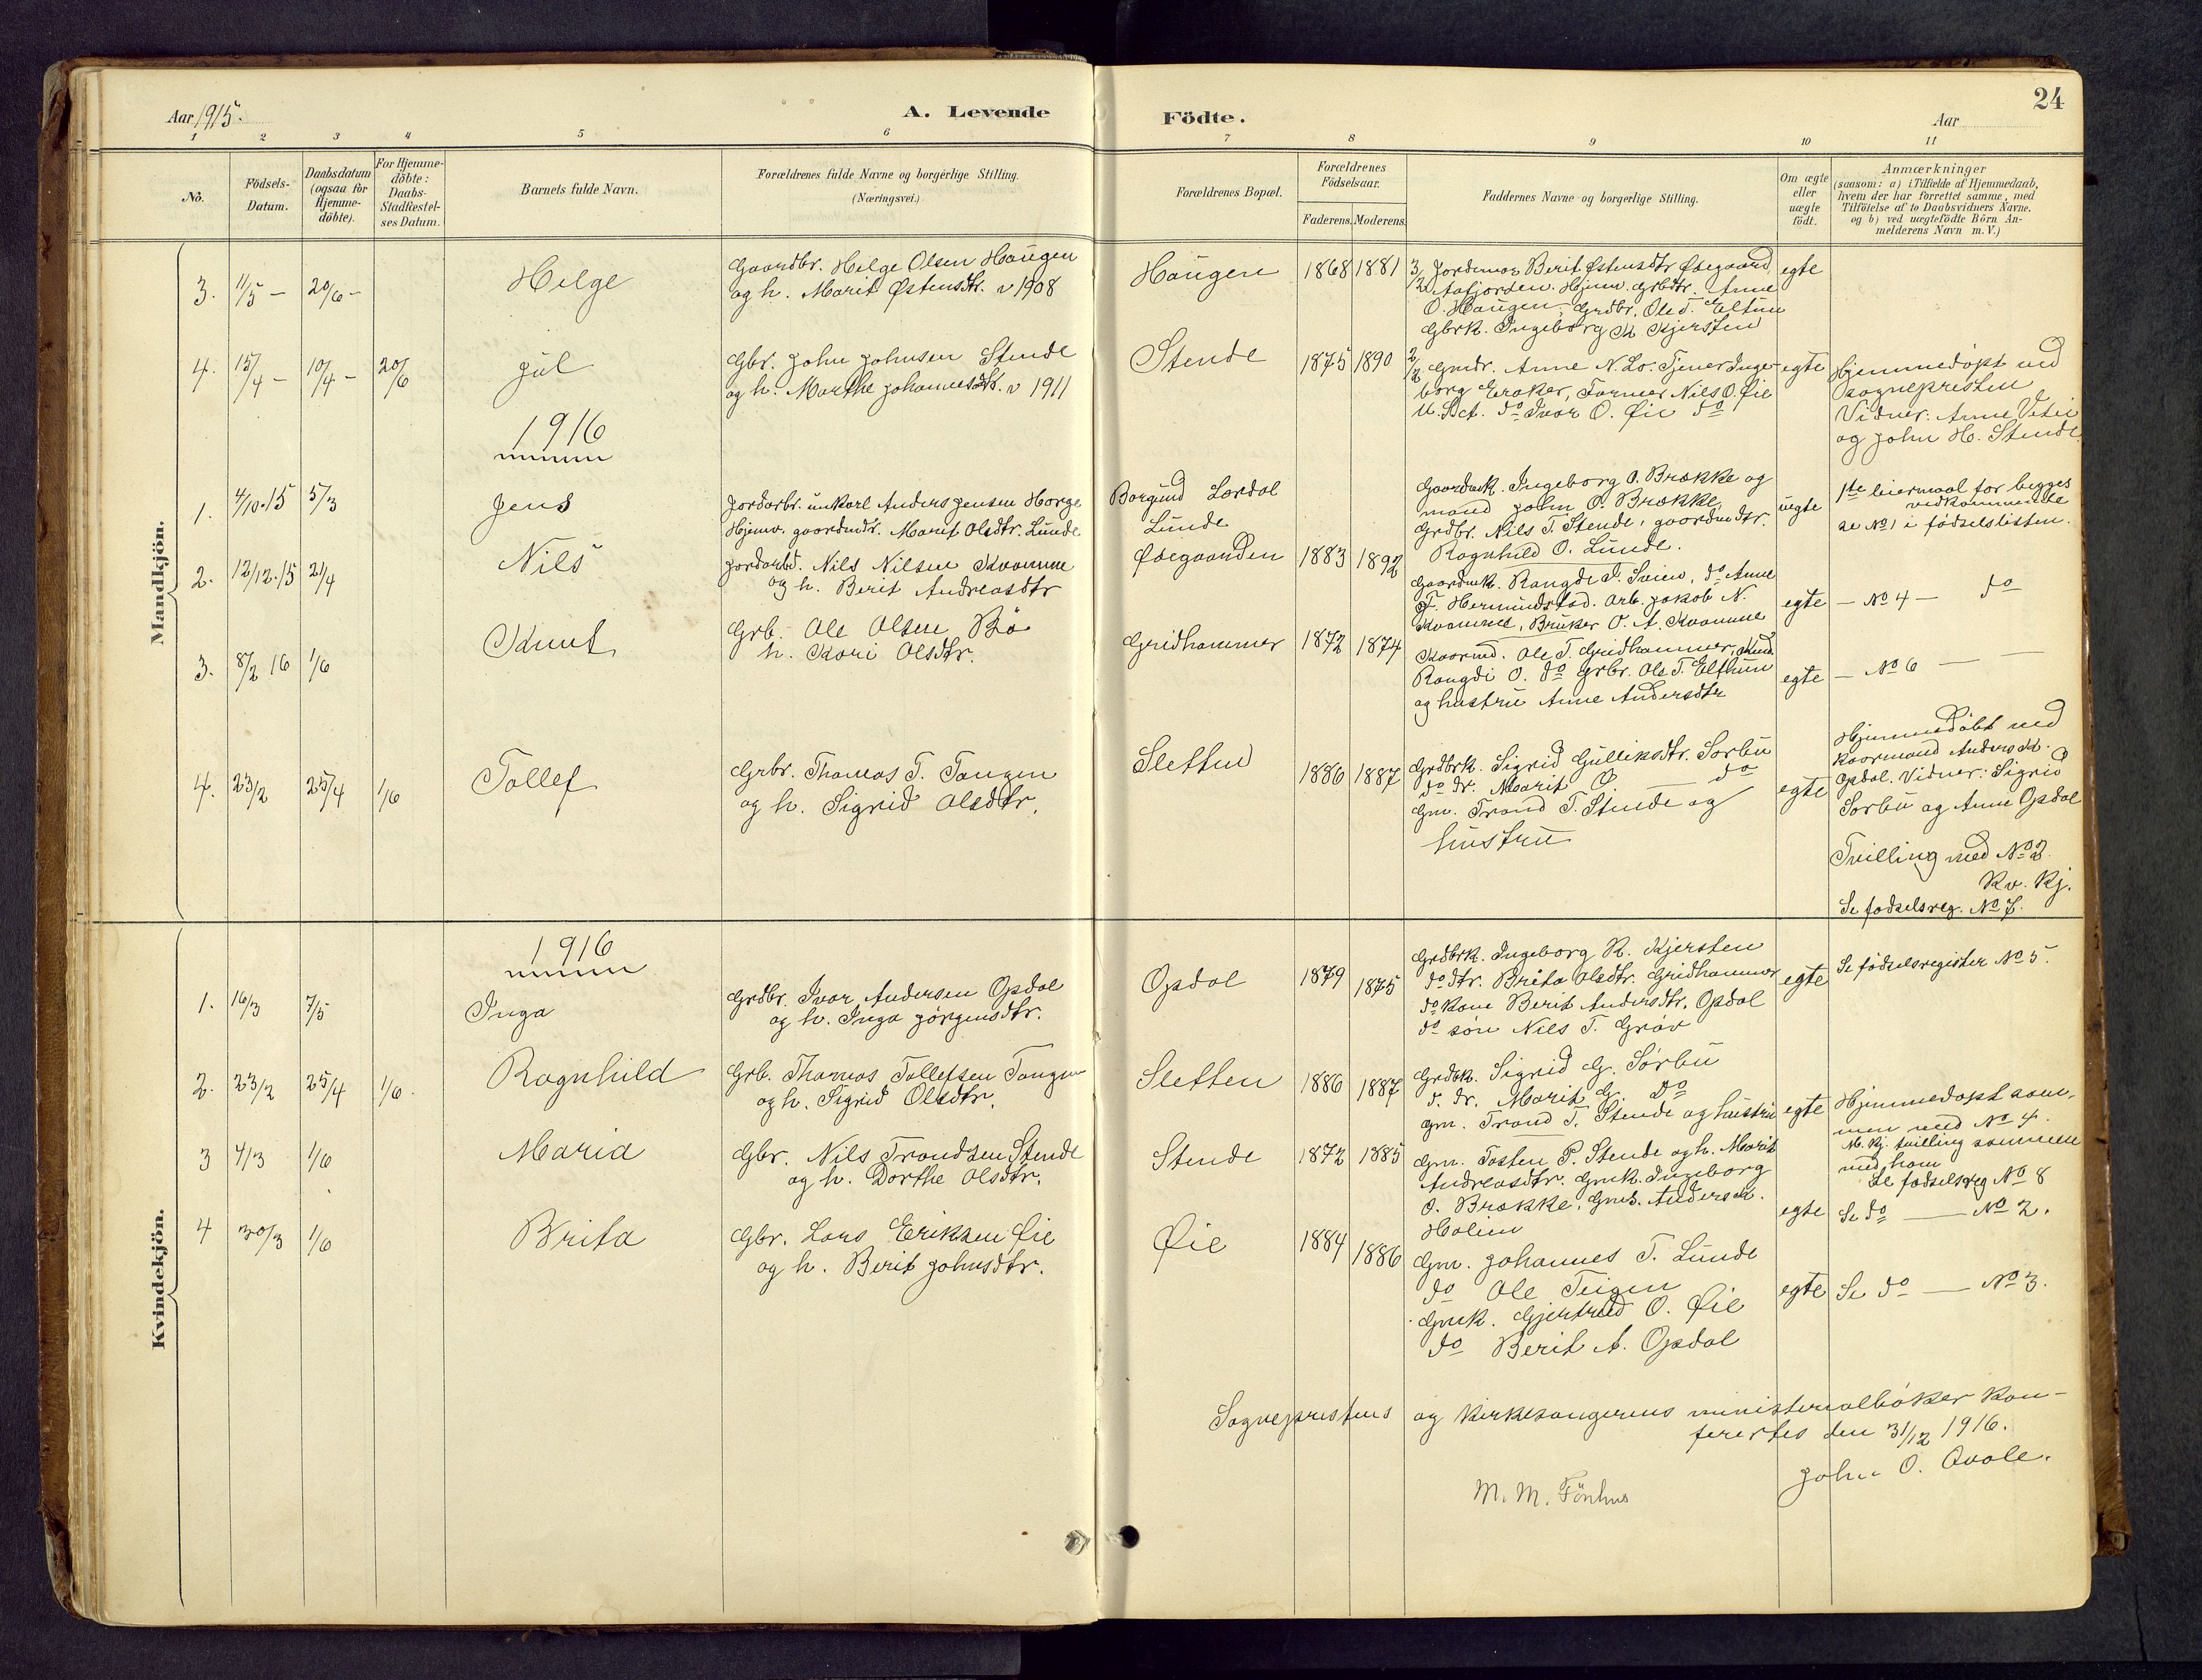 Aar 1915.
A. Levende
Födte.
Aar
24
1 2 3 4 5 6 7 8 9 10 11
No.
Födsels-Datum.
Daabsdatum (ogsaa for Hjemme-döbte).
For Hjemme-döbte: Daabs-Stadfæstel-ses Datum.
Barnets fulde Navn.
Forældrenes fulde Navne og borgerlige Stilling.
(Næringsvei.)
Forældrenes Bopæl.
Forældrenes Födselsaar.
Faderens. Moderens.
Faddernes Navne og borgerlige Stilling.
Om ægte eller uægte födt.
Anmærkninger
(saasom: a) i Tilfælde af Hjemmedaab,
hvem der har forrettet samme, med
Tilföielse af to Daabsvidners Navne,
og b) ved uægtefödte Börn An-
melderens Navn m. V.)
Mandkjön.
3. 11/5 – 20/6 – Helge
Gaardbr. Helge Olsen Haugen
og h. Marit Østensdtr. v 1908
Haugen 1868 1881
3/2 Jordemor Berit Østensdtr Ødegaard
Aafjorden. Hjemv. grbdtr. Anne
O. Haugen, Grdbr. Ole T. Eltun
Gbrk. Ingeborg K Kjersten
egte
4. 15/4 – 10/4 – 20/6 Jul
Gbr. John Johnsen Stende
og h. Marthe Johannesdtr. v 1911
Stende 1875 1890
2/2 Gmdr. Anne N. Lo. Tjener Inge-
borg Eraker, Farmer Nils O. Øie
U. Sct. do Ivar O. Øie do
egte
Hjemmedøpt ved
sognepresten
Vidner: Anne Vetie
og John H. Stende
1916
1. 4/10.15 5/3 Jens
Jordarb. unkarl Anders Jensen Horge
Hjemv. gaardmdr. Marit Olsdtr. Lunde
Borgund Lærdal
Lunde
Gaardmk. Ingeborg O. Brække og
mand John O. Brække,
Grdbr. Nils T. Stende, gaardmdtr.
Ragnhild O. Lunde.
uegte
1ste leiermaal for begges
vedkommende
se No 1 i fødselslisten.
2. 12/12.15 2/4 Nils
Jordarbd. Nils Nilsen Kvamme
og h. Berit Andreasdtr
Ødegaarden 1883 1892
Gaardmk. Rangdi J. Svien, do Anne
T. Hermundstad. Arb. Jakob N.
Kvamme, Bruker O. A. Kvamme
egte – No 4 – do
3. 8/2 16 1/6 Knut
Grb. Ole Olsen Bø
h. Kari Olsdtr.
Gridhammer 1872 1874
Kaarmd. Ole T. Gridhammer, Kund.
Rangdi O. do grbr. Ole T. Elthun
og hustru Anne Andersdtr
egte – No 6 – –
4. 23/2 25/4 1/6 Tollef
Grbr. Thomas T. Tangen
og h. Sigrid Olsdtr.
Sletten 1886 1887
Grdbrk. Sigrid Gulliksdtr. Sørbu
do dr. Marit G. – do
Gm. Trond T. Stende og
hustru
egte
Hjemmedøbt ved
Kaarmand Anders K.
Opdal. Vidner: Sigrid
Sørbu og Anne Opdal
Tvilling med No 2
Kv. Kj.
Se fødselsreg. No 7.
Kvindekjön.
1916
1. 16/3 7/5 Inga
Grdbr. Ivar Andersen Opdal
og h. Inga Jørgensdtr.
Opdal 1879 1875
Grdbrk. Ingeborg K. Kjersten
do dtr. Brita Olsdtr. Gridhammer
do Kone Berit Andersdtr. Opdal
do søn Nils T. Grøv
egte
Se fødselsregister No 5.
2. 23/2 25/4 1/6. Ragnhild
Grb. Thomas Tollefsen Tangen
og h. Sigrid Olsdtr.
Sletten 1886 1887
Grdbk. Sigrid G. Sørbu
d. dr. Marit G. do
Gm. Trond T. Stende og hustru
egte
Hjemmedøpt sam-
men med No 4.
M. Kj. tvilling sammen
med ham
Se fødselsreg No 8
3 4/3 1/6 Maria
Gbr. Nils Trondsen Stende
og h. Dorthe Olsdtr.
Stende 1872 1885
Gm. Tosten P. Stende og h. Marit
Andreasdtr. Gmk. Ingeborg
O. Brække, Gms. Anders K.
Holien
egte Se do – No 2.
4 30/3 1/6 Brita
Gbr. Lars Eriksen Øie
og h. Berit Johnsdtr.
Øie 1884 1886
Gm. Johannes T. Lunde
do Ole Teigen
Gmk. Gjertrud O. Øie
do Berit A. Opdal
egte Se do – No 3.
Sogneprestens og kirkesangerens ministerialbøker kon-
ferertes den 31/12 1916.
M. M. Fönhus
John O. Qvale.